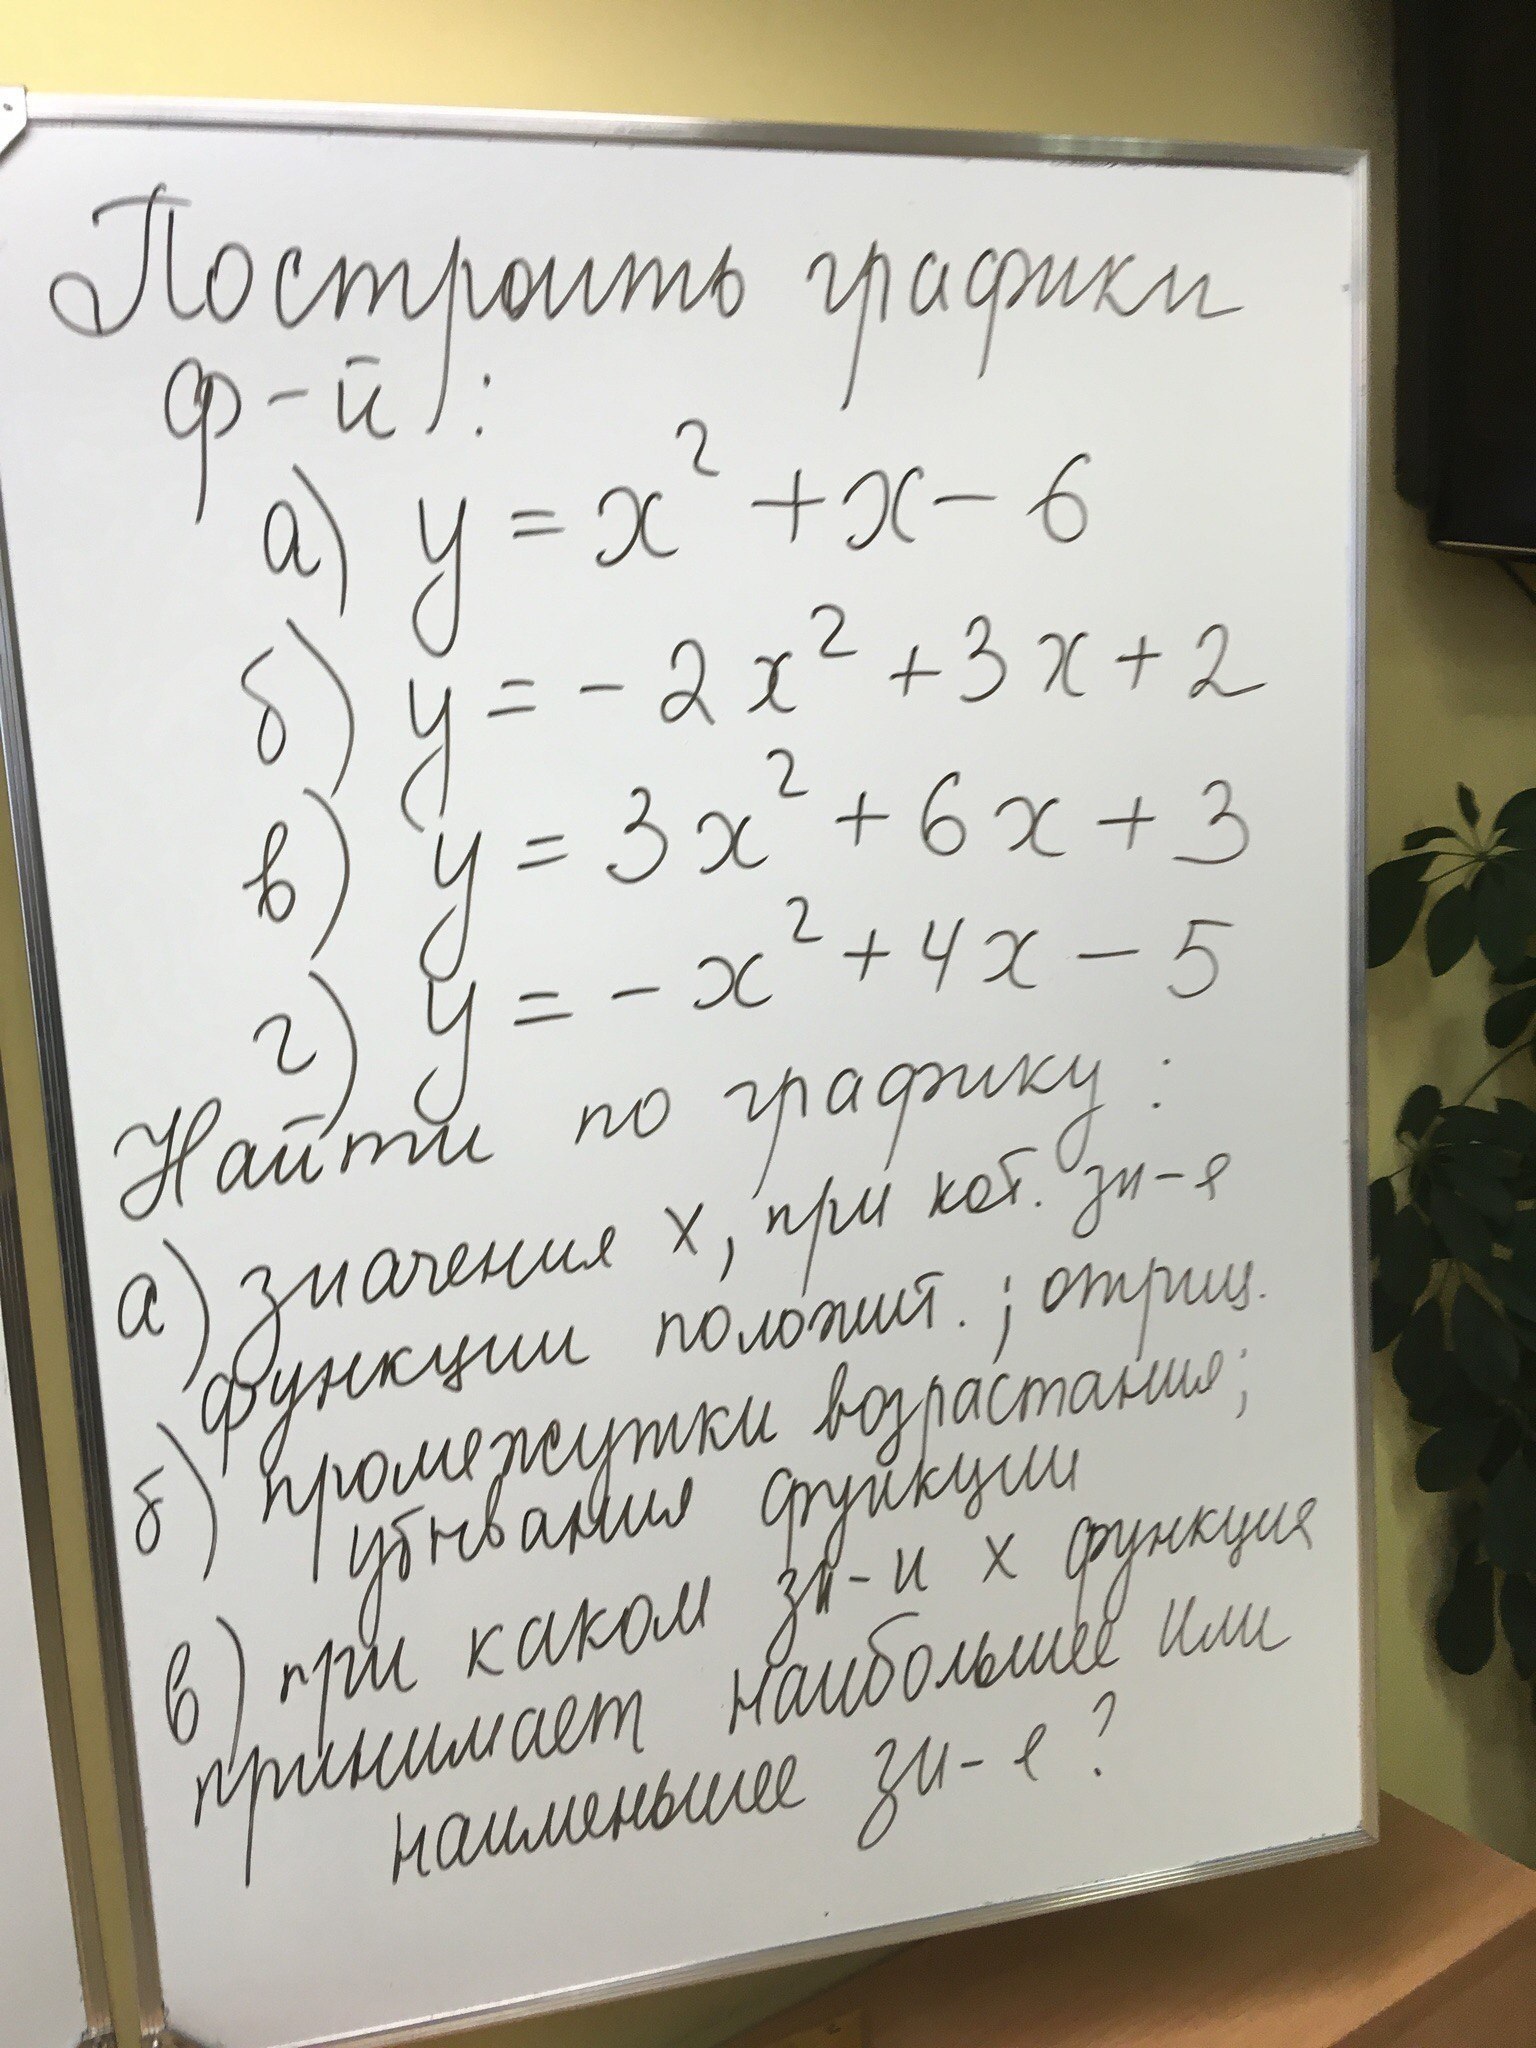 Построить графики
ф-й :
а) y = x² + x - 6
б) y = - 2x² + 3x + 2
в) y = 3x² + 6x + 3
г) y = - x² + 4x - 5
Найти по графику :
а) значения x, при кот. зн-е
функции положит. ; отриц.
б) промежутки возрастания;
убывания функции
в) при каком зн-и x функция
принимает наибольшее или
наименьшее зн-е ?